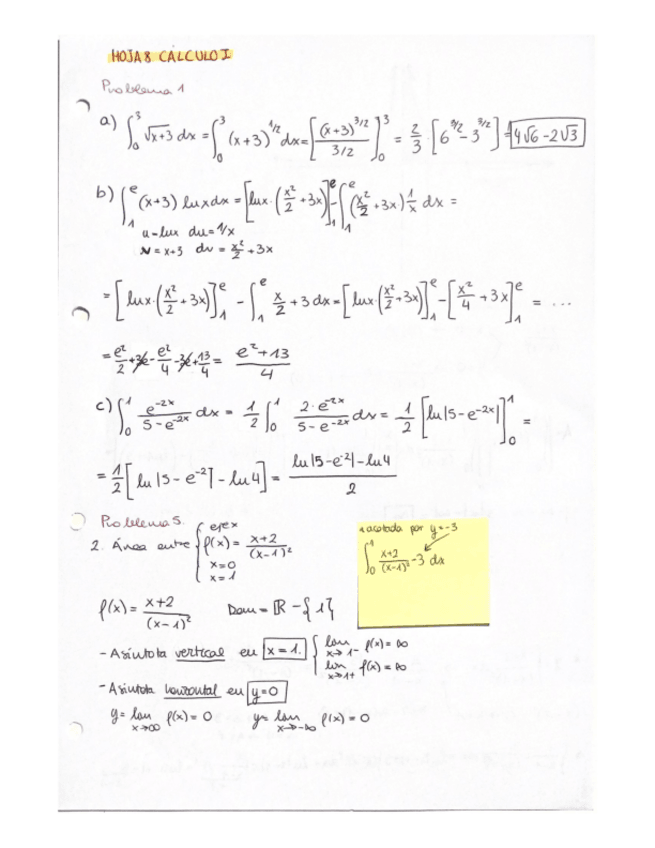 HOJA 8 CÁLCULO I
Problema 1
a) ∫₀³ √x+3 dx = ∫₀³ (x+3)^1/2 dx = [(x+3)^3/2 / 3/2]₀³ = 2/3 · [6^3/2 - 3^3/2] = 4√6 - 2√3
b) ∫₁ᵉ (x+3) lnx dx = [lnx · (x²/2 + 3x)]₁ᵉ - ∫₁ᵉ (x²/2 + 3x) 1/x dx =
u = lnx du = 1/x
v = x+3 dv = x²/2 + 3x
= [lnx · (x²/2 + 3x)]₁ᵉ - ∫₁ᵉ x/2 + 3 dx = [lnx · (x²/2 + 3x)]₁ᵉ - [x²/4 + 3x]₁ᵉ = ...
= e²/2 + 3e - e²/4 - 3e + 13/4 = e² + 13 / 4
c) ∫₀¹ e^-2x / 5 - e^-2x dx = 1/2 ∫₀¹ 2·e^-2x / 5 - e^-2x dx = 1/2 [ln|5 - e^-2x|]₀¹ =
= 1/2 [ln|5 - e^-2| - ln4] = ln|5 - e^-2| - ln4 / 2
Problema 5.
2. Área entre { eje x
f(x) = x+2 / (x-1)²
x=0
x=1
acotada por y=-3
∫₀¹ x+2 / (x-1)² - 3 dx
f(x) = x+2 / (x-1)² Dom = ℝ - {1}
- Asíntota vertical en x = 1. { lim x→1⁻ f(x) = ∞
lim x→1⁺ f(x) = ∞
- Asíntota horizontal en y=0
y = lim x→∞ f(x) = 0 y = lim x→-∞ f(x) = 0